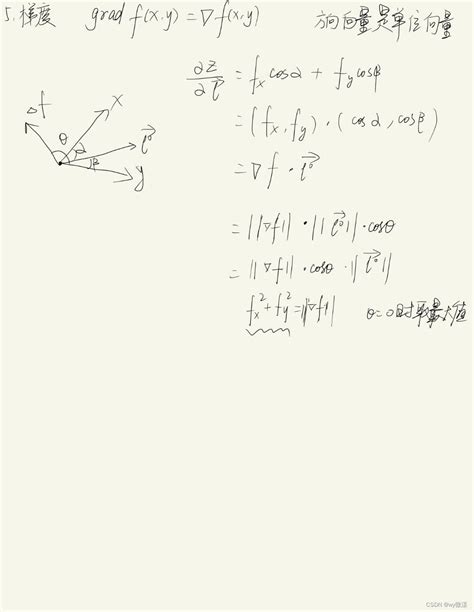 5. 梯度 grad f(x,y) = ∇f(x,y) 方向向量是单位向量
∂z/∂l = fx cosα + fy cosβ
= (fx, fy) · (cosα, cosβ)
= ∇f · l⁰
= ||∇f|| · ||l⁰|| · cosθ
= ||∇f|| · cosθ · ||l⁰||
fx² + fy² = ||∇f|| θ=0时取最大值
△f
θ
x
α
l⁰
β
y
CSDN